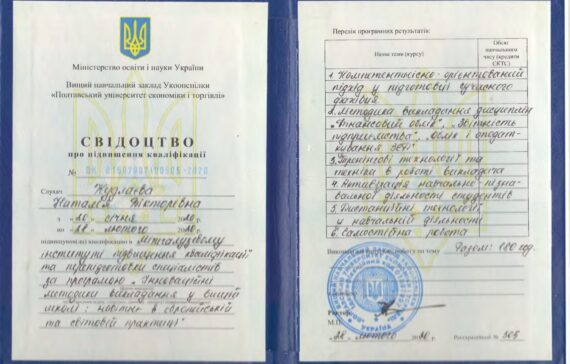 Міністерство освіти і науки України
Вищий навчальний заклад Укоопспілки
«Полтавський університет економіки і торгівлі»
СВІДОЦТВО
про підвищення кваліфікації
№
Слухач
Наталя Вікторівна
з «22» січня 2020р.
по «22» лютого 2020р.
підвищував(ла) кваліфікацію в „Міжгалузевому
інституті підвищення кваліфікації"
та перепідготовки спеціалістів
за програмою „Інноваційні
методики викладання у вищій
школі: новітнє в європейській
та світовій практиці"
Перелік програмних результатів:
Назва теми (курсу)
Обсяг
навчального
часу (кредити
ЄКТС)
1. Компетентісно-орієнтований
підхід у підготовці сучасного
фахівця
2. Методика викладання дисциплін
„Фінансовий облік", „Звітність
підприємства", „Облік і оподат-
кування ЗЕД"
3. Тренінгові технології та
техніка в роботі викладача
4. Активація навчально-пізна-
вальної діяльності студентів
5. Дистанційні технології
у навчальній діяльності
6. Самостійна робота
Разом: 180 год.
роботу на тему
Ректор
М.П.
УКРАЇНА
«22» лютого 2020 р.
Реєстраційний № 505